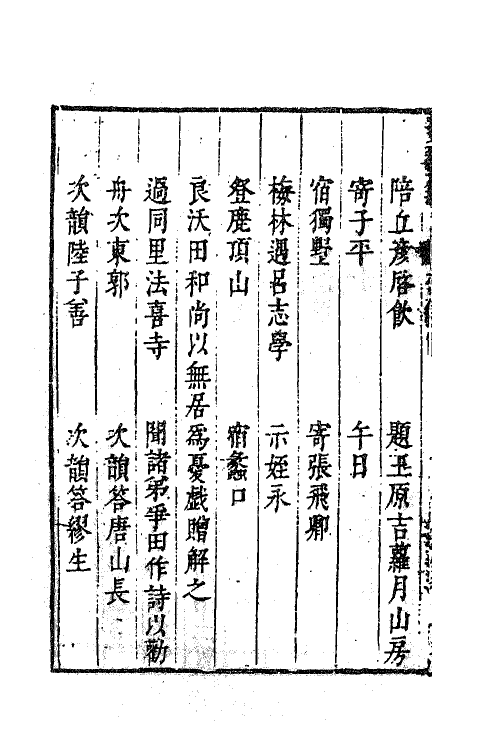 陪丘彥啓飲　題王原吉蘿月山房
寄子平　午日
宿獨墅　寄張飛卿
梅林遇呂志學　示姪永
登鹿頂山　宿蠡口
良沃田和尚以無居爲憂戲贈解之
過同里法喜寺　聞諸弟爭田作詩以勸
舟次東郭　次韻答唐山長
次韻陸子善　次韻答繆生